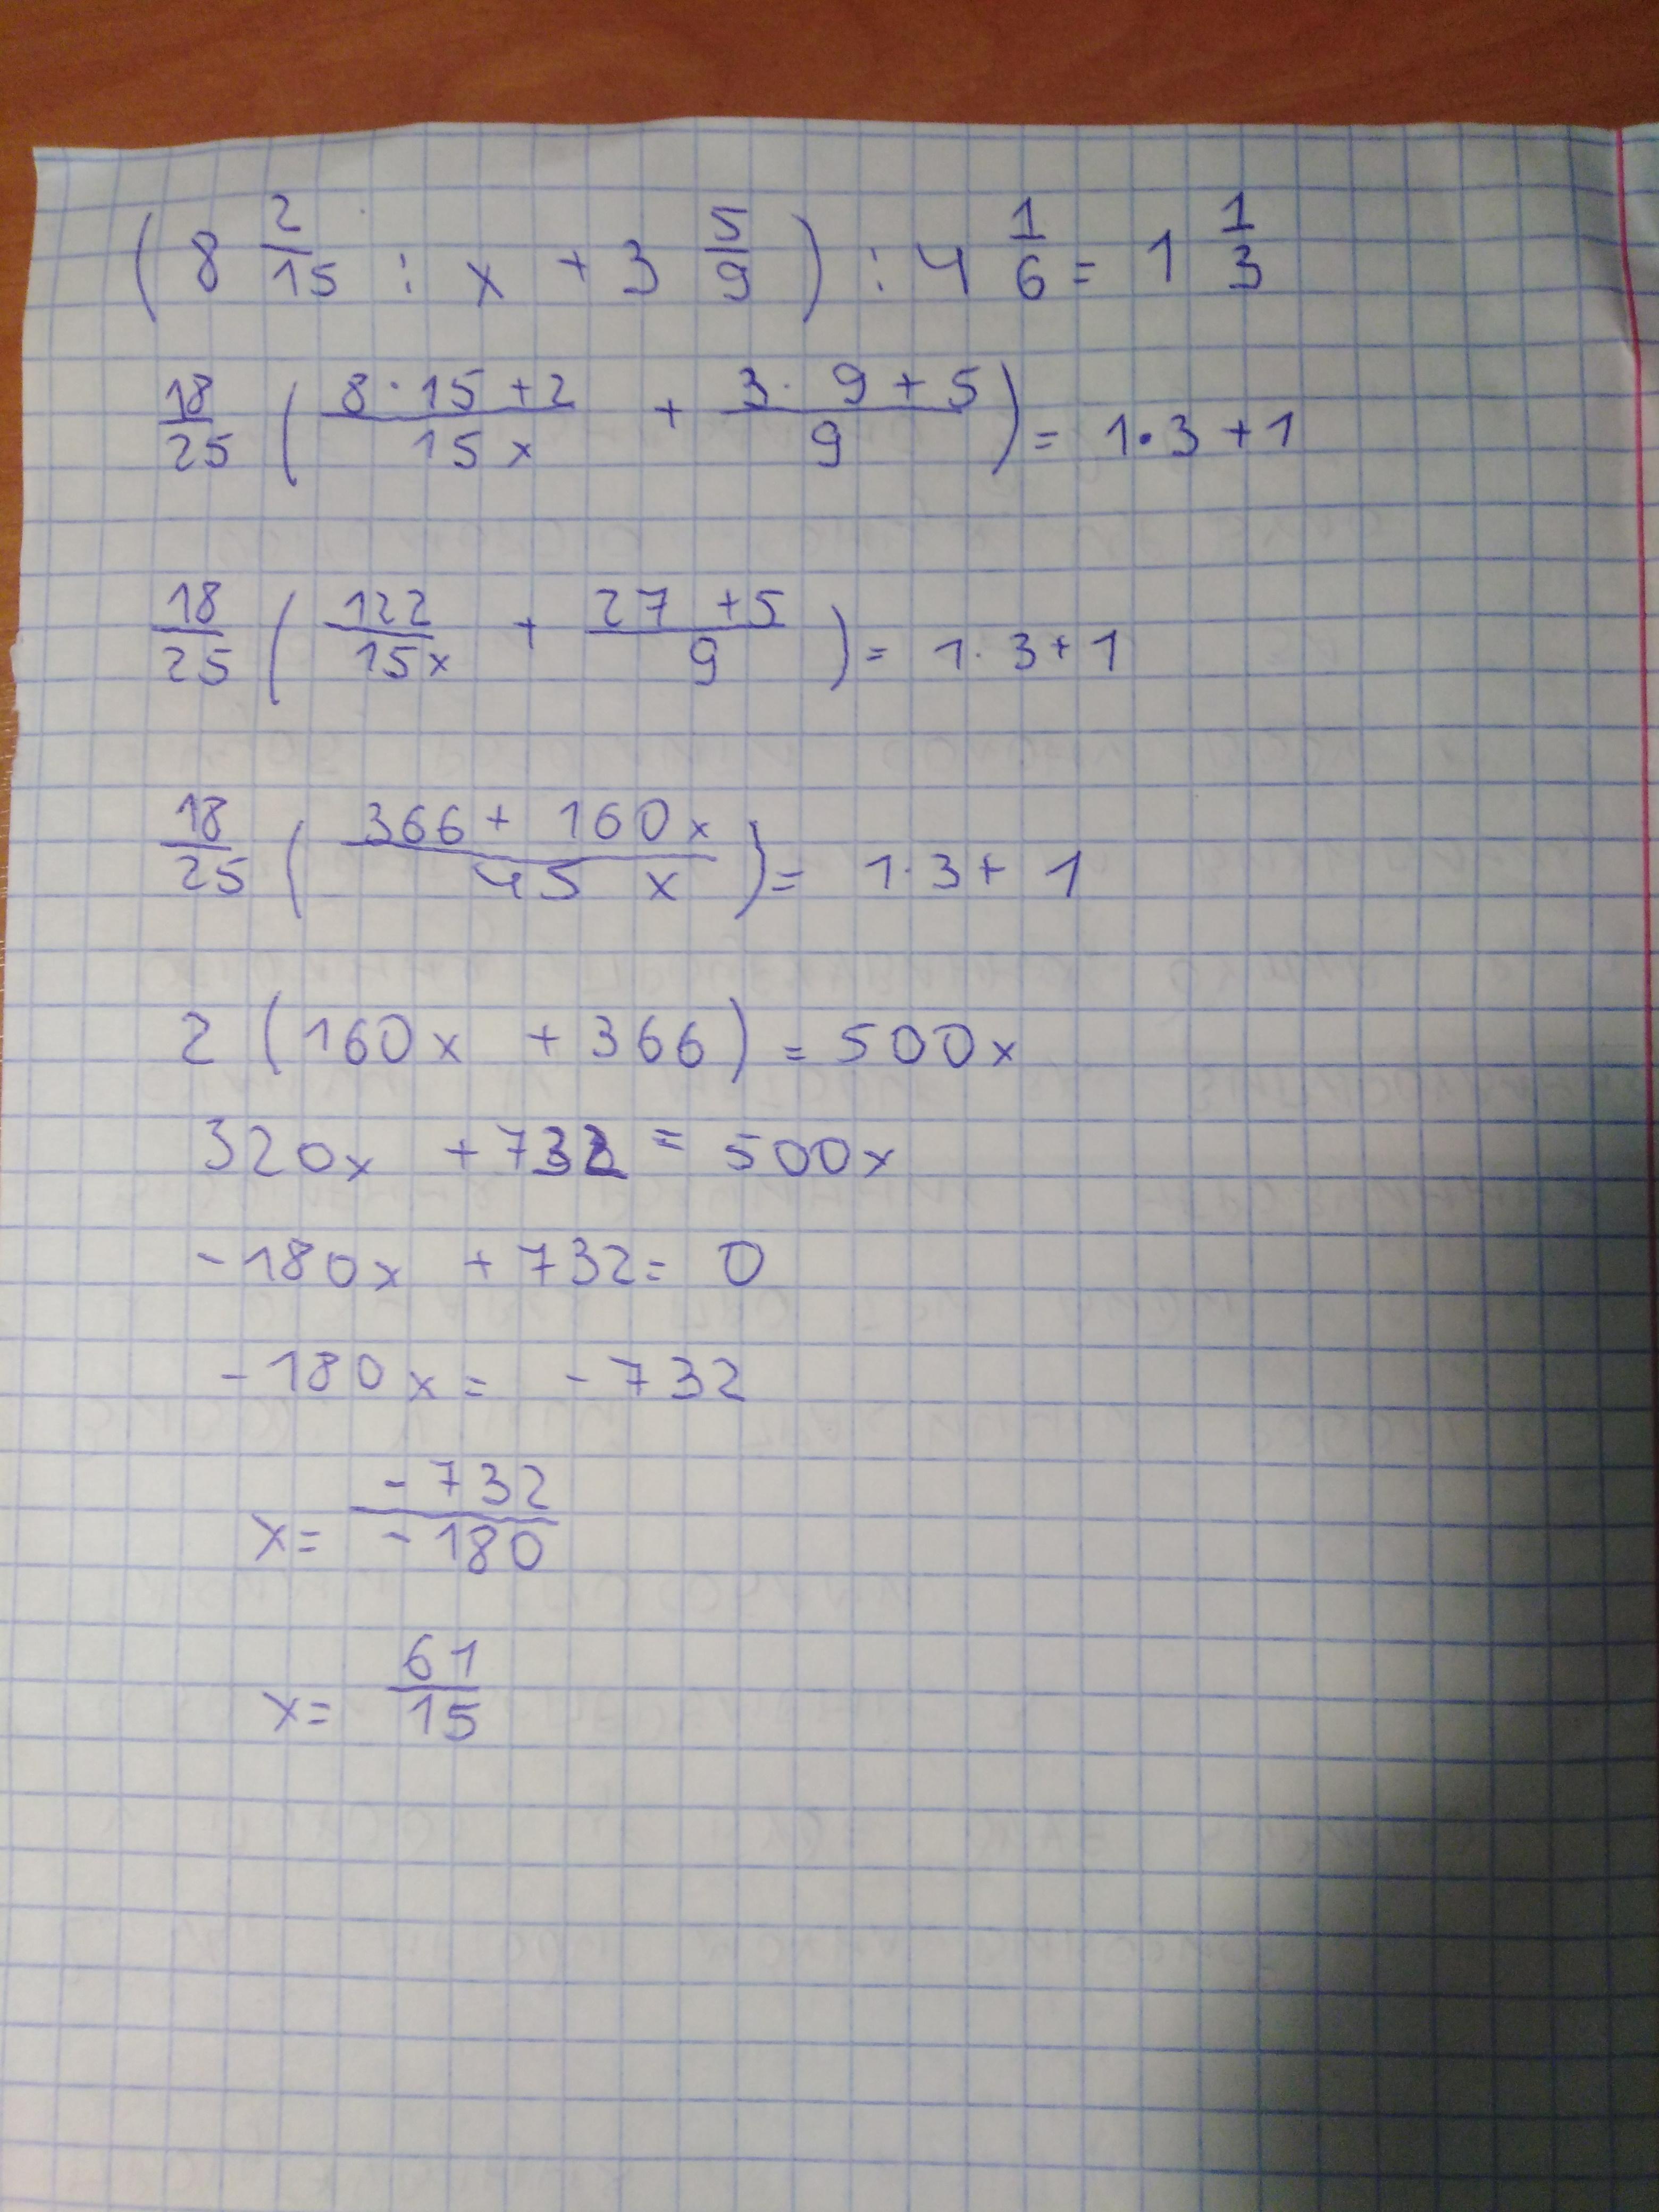 (8 2/15 : x + 3 5/9) : 4 1/6 = 1 1/3
18/25 ( (8·15+2)/(15x) + (3·9+5)/9 ) = 1·3+1
18/25 ( 122/(15x) + (27+5)/9 ) = 1·3+1
18/25 ( (366+160x)/(45x) ) = 1·3+1
2 (160x + 366) = 500x
320x + 732 = 500x
-180x + 732 = 0
-180x = -732
x = -732/-180
x = 61/15